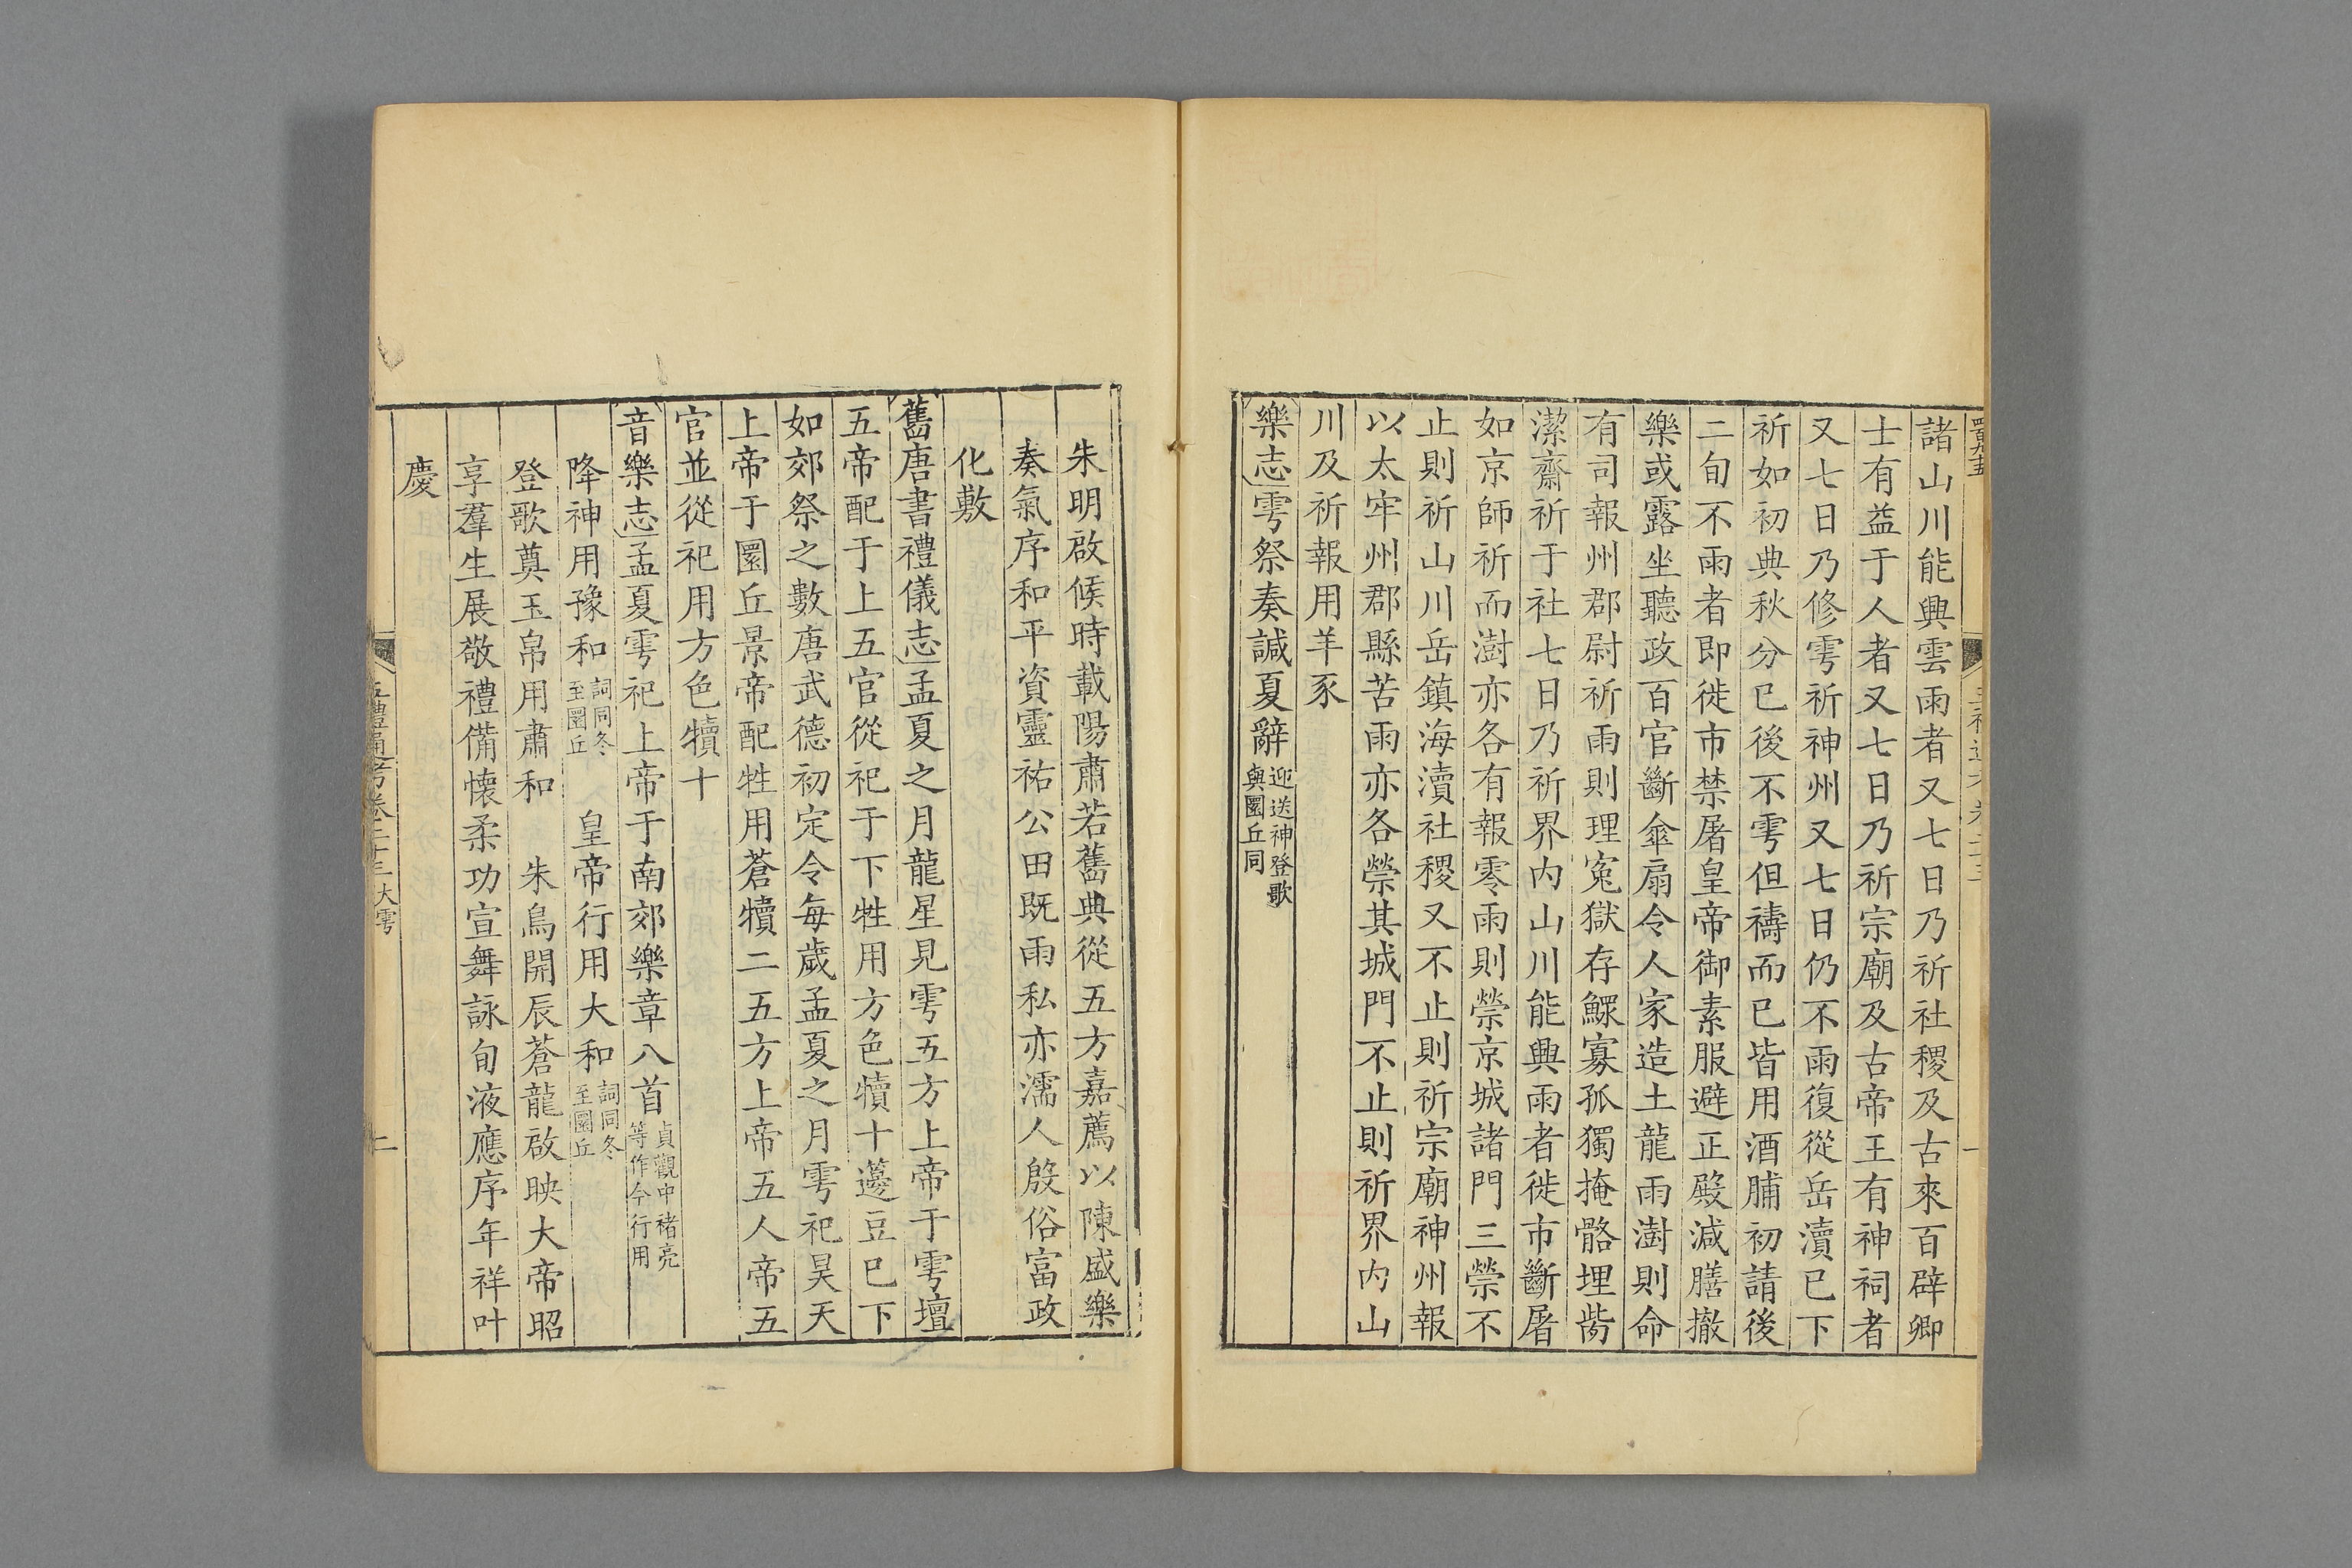 諸山川能興雲雨者又七日乃祈社稷及古來百辟卿
士有益于人者又七日乃祈宗廟及古帝王有神祠者
又七日乃修雩祈神州又七日仍不雨復從岳瀆已下
祈如初典秋分已後不雩但禱而已皆用酒脯初請後
二旬不雨者即徙市禁屠皇帝御素服避正殿減膳撤
樂或露坐聽政百官斷傘扇令人家造土龍雨澍則命
有司報州郡尉祈雨則理寃獄存鰥寡孤獨掩骼埋胔
潔齋祈于社七日乃祈界内山川能興雨者徙市斷屠
如京師祈而澍亦各有報零雨則禜京城諸門三禜不
止則祈山川岳鎮海瀆社稷又不止則祈宗廟神州報
以太牢州郡縣苦雨亦各禜其城門不止則祈界内山
川及祈報用羊豕
樂志雩祭奏諴夏辭迎送神登歌
與圜丘同
朱明啟候時載陽肅若舊典從五方嘉薦以陳盛樂
奏氣序和平資靈祐公田既雨私亦濡人殷俗富政
化敷
舊唐書禮儀志孟夏之月龍星見雩五方上帝于雩壇
五帝配于上五官從祀于下牲用方色犢十籩豆已下
如郊祭之數唐武德初定令每歲孟夏之月雩祀昊天
上帝于圜丘景帝配牲用蒼犢二五方上帝五人帝五
官並從祀用方色犢十
音樂志孟夏雩祀上帝于南郊樂章八首貞觀中褚亮
等作今行用
降神用豫和詞同冬
至圜丘
皇帝行用大和詞同冬
至圜丘
登歌奠玉帛用肅和 朱鳥開辰蒼龍啟映大帝昭
享羣生展敬禮備懷柔功宣舞詠旬液應序年祥叶
慶
五禮通考卷二十三大雩
二